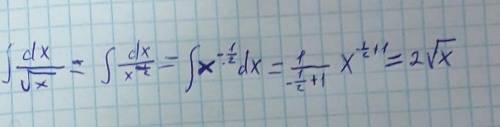 ∫ dx/√x = ∫ dx/x^½ = ∫ x^(-½) dx = 1/(-½+1) x^(-½+1) = 2√x